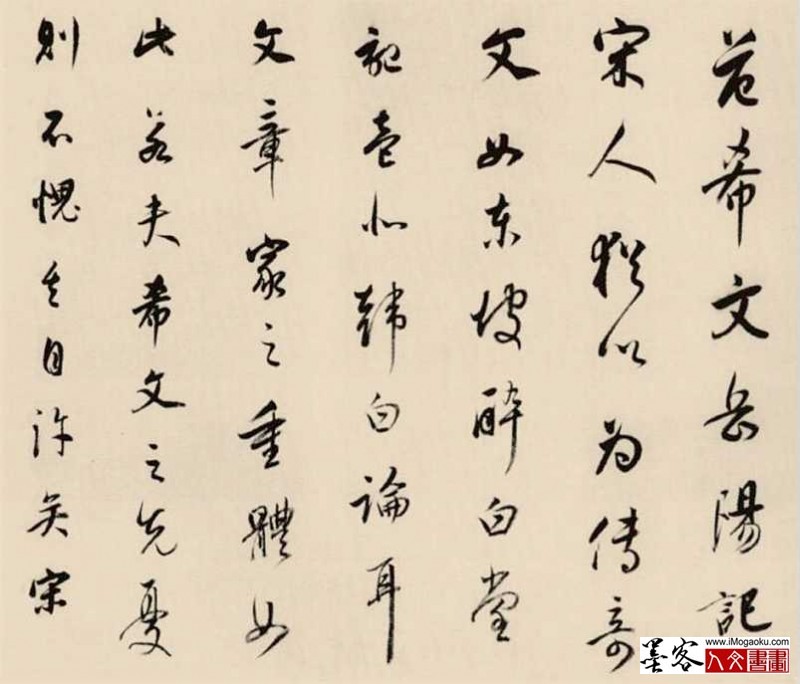 范希文岳陽記
宋人猶以為傳奇
文如東坡醉白堂
記壱是韓白論耳
文章家之重體如
此若夫希文之先憂
則不愧其自許矣宋
www.iMogaoku.com
墨客 人文書畫